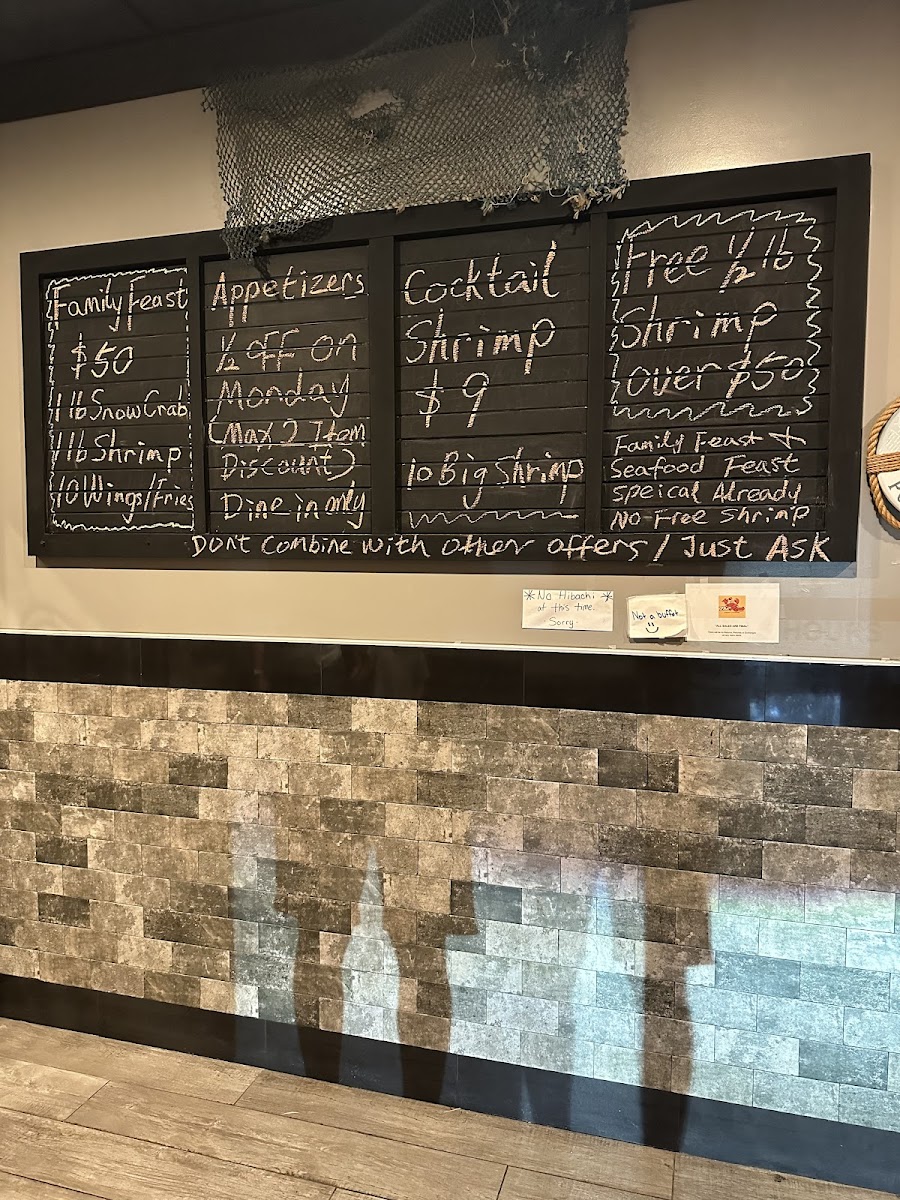 Family Feast
$50
1 lb Snow Crab
1 lb Shrimp
10 Wings/Fries
Appetizers
1/2 OFF on
Monday
(Max 2 Item
Discount)
Dine in only
Cocktail
Shrimp
$9
10 Big Shrimp
Free 1/2 lb
Shrimp
over $50
Family Feast +
Seafood Feast
Speical Already
No Free Shrimp
Don't Combine with other offers / Just ASK
*No Hibachi*
at this time.
Sorry.
Not a buffet